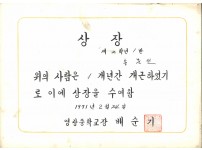 상장
제 학년 반
위의 사람은 1개년간 개근하였기
로 이에 상장을 수여함
1971년 2월
중학교장 배순기